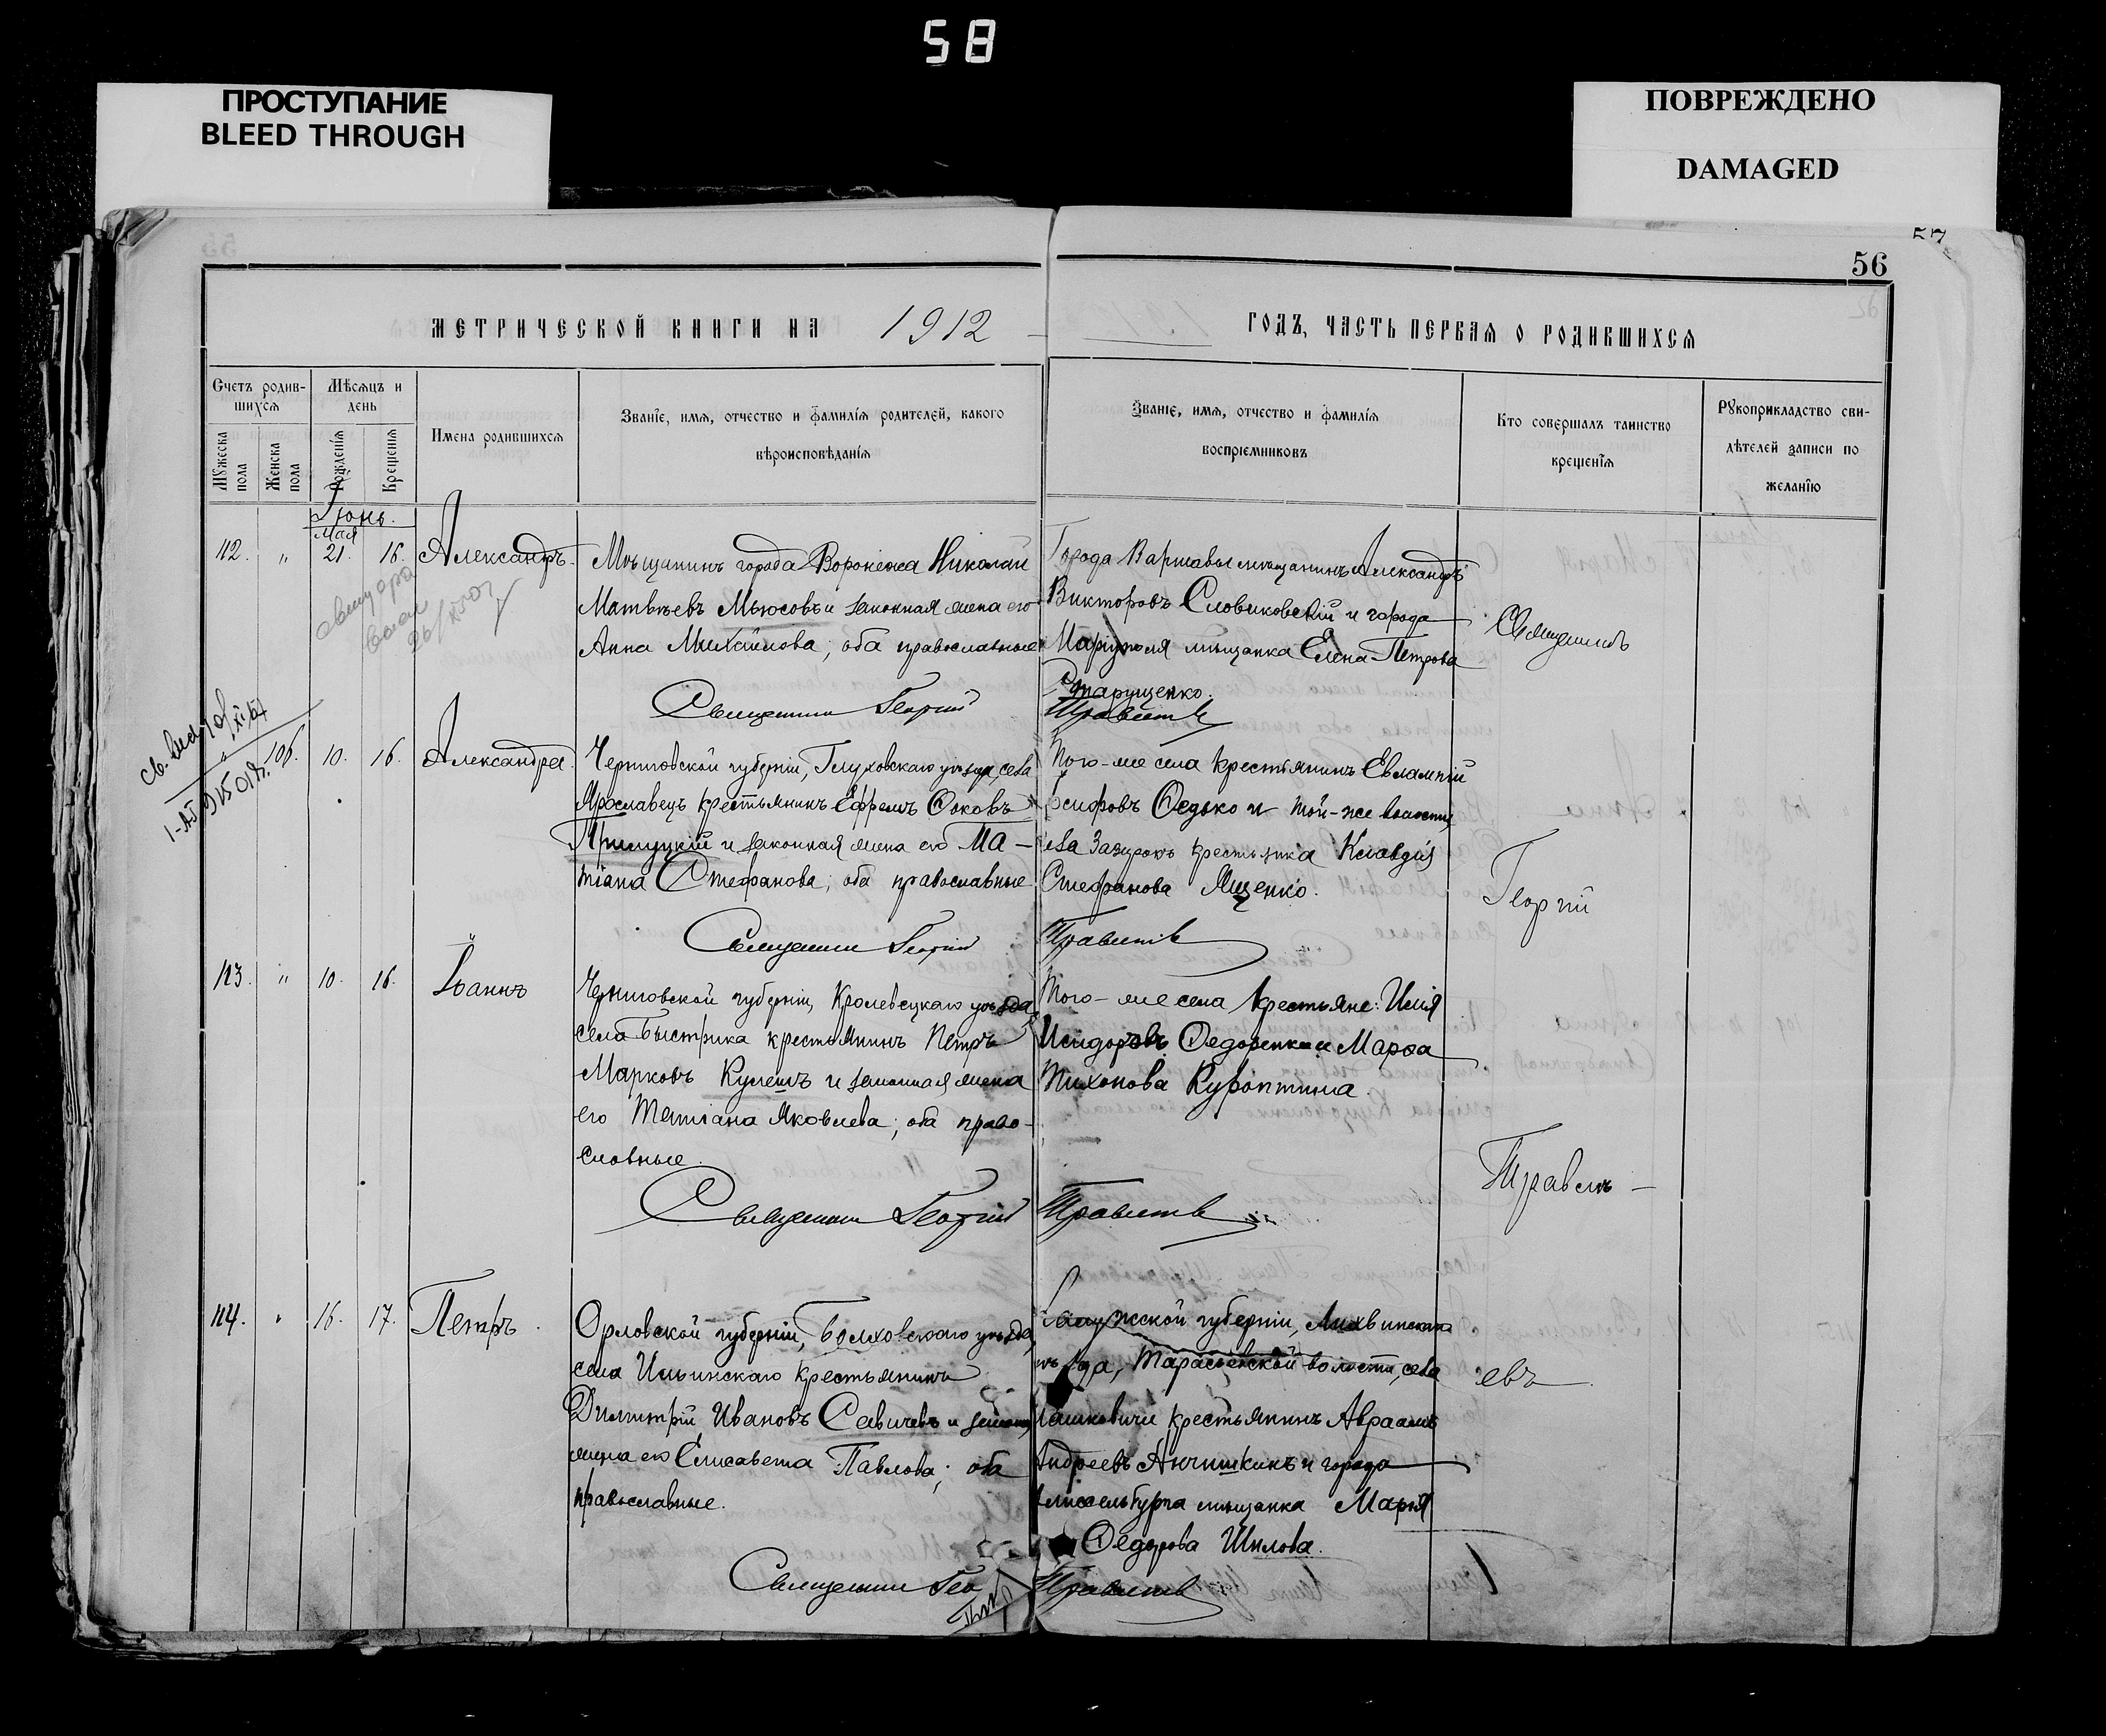 58
ПРОСТУПАНИЕ
BLEED THROUGH
ПОВРЕЖДЕНО
DAMAGED
56
МЕТРИЧЕСКОЙ КНИГИ НА 1912
ГОДЪ, ЧАСТЬ ПЕРВАЯ О РОДИВШИХСЯ
Счетъ родив-
шихся
Мѣсяцъ и
день
Мужеска
пола
Женска
пола
Рожденія
Крещенія
Имена родившихся
Званіе, имя, отчество и фамилія родителей, какого
вѣроисповѣданія
Званіе, имя, отчество и фамилія
воспріемниковъ
Кто совершалъ таинство
крещенія
Рукоприкладство сви-
дѣтелей записи по
желанію
Іюнь.
Мая
112. " 21. 16. Александръ.
Мѣщанинъ города Воронежа Николай
Матвѣевъ Мьюсовъ и законная жена его
Анна Михайлова; оба православные
Города Варшавы мѣщанинъ Александръ
Викторовъ Словиковскій и города
Маріуполя мѣщанка Елена Петрова
Старущенко.
Священникъ Георгій Травлевъ
Священникъ
106. 10. 16. Александра.
Черниговской губерніи, Глуховскаго уѣзда, села
Ярославецъ крестьянинъ Ефремъ Фоковъ
Прилуцкій и законная жена его Та-
тіана Стефанова; оба православные
Того-же села крестьянинъ Евлампій
Іосифовъ Федько и той-же волости,
села Зазирокъ крестьянка Клавдія
Стефанова Ященко.
Священникъ Георгій
Георгій
113. " 10. 16. Іоаннъ
Черниговской губерніи, Кролевецкаго уѣзда,
села Быстрика крестьянинъ Петръ
Марковъ Кулешъ и законная жена
его Татіана Яковлева; оба право-
славные.
Того-же села крестьяне: Илія
Исидоровъ Федоренко и Марфа
Тихонова Куроптина.
Священникъ Георгій
114. " 16. 17. Петръ.
Орловской губерніи, Болховскаго уѣзда,
села Ильинскаго крестьянинъ
Димитрій Ивановъ Савичевъ и законн,
жена его Елисавета Павлова; оба
православные.
Калужской губерніи, Лихвинскаго
уѣзда, волости, села
крестьянинъ Авраамъ
Андреевъ Анчишкинъ и города
мѣщанка Марія
Федорова Шилова.
евъ.
Священникъ